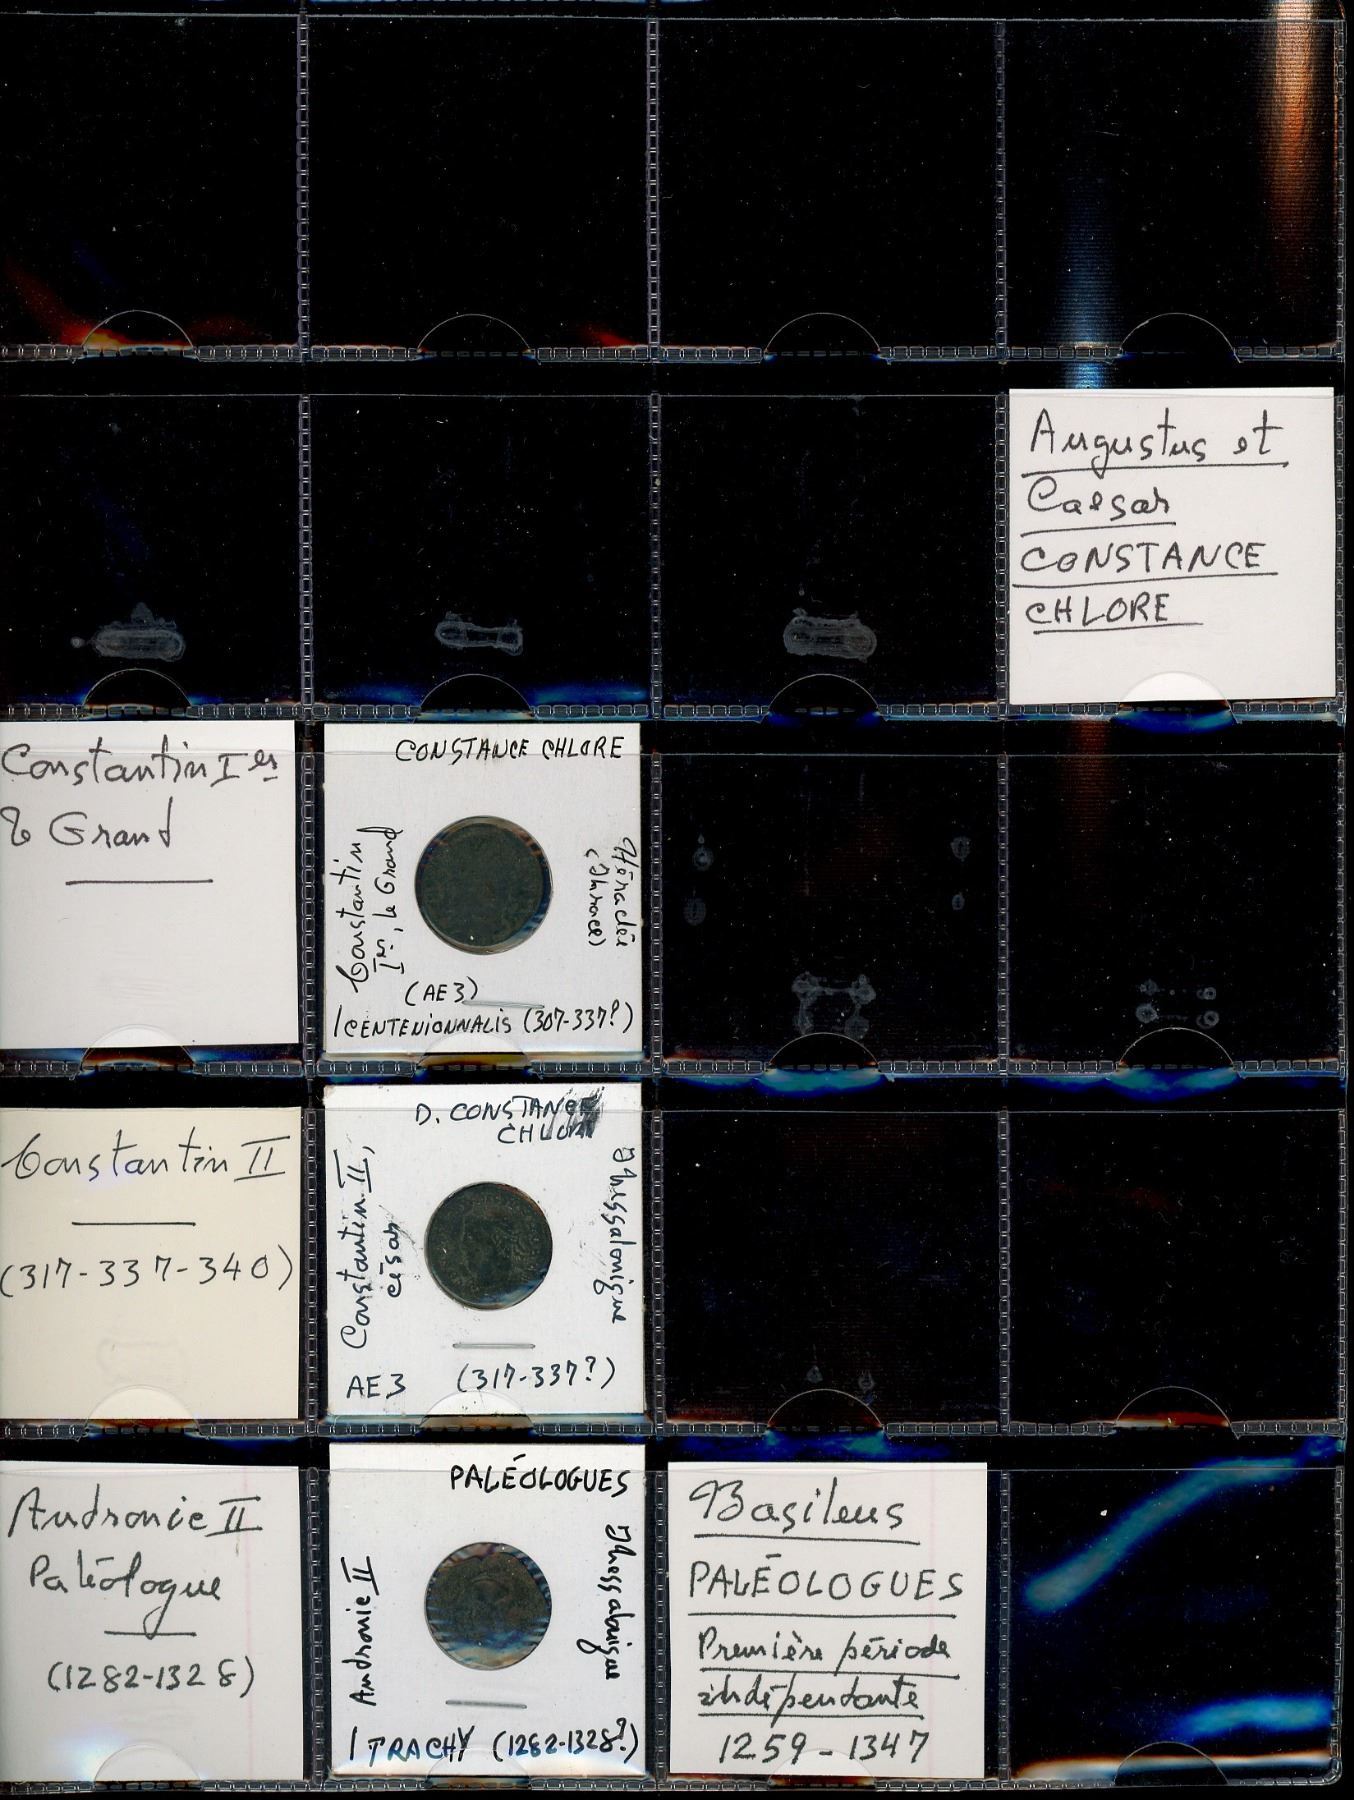 Augustus et
Caesar
CONSTANCE
CHLORE
Constantin Ier
le Grand
CONSTANCE CHLORE
Constantin
Ier, le Grand
Héraclée
(Thrace)
(AE3)
1 CENTENIONNALIS (307-337?)
Constantin II
(317-337-340)
D. CONSTANCE
CHLORE
Constantin II,
césar
Thessalonique
AE3 (317-337?)
Andronic II
Paléologue
(1282-1328)
PALÉOLOGUES
Andronic II
Thessalonique
1 TRACHY (1282-1328?)
Basileus
PALÉOLOGUES
Première période
indépendante
1259-1347